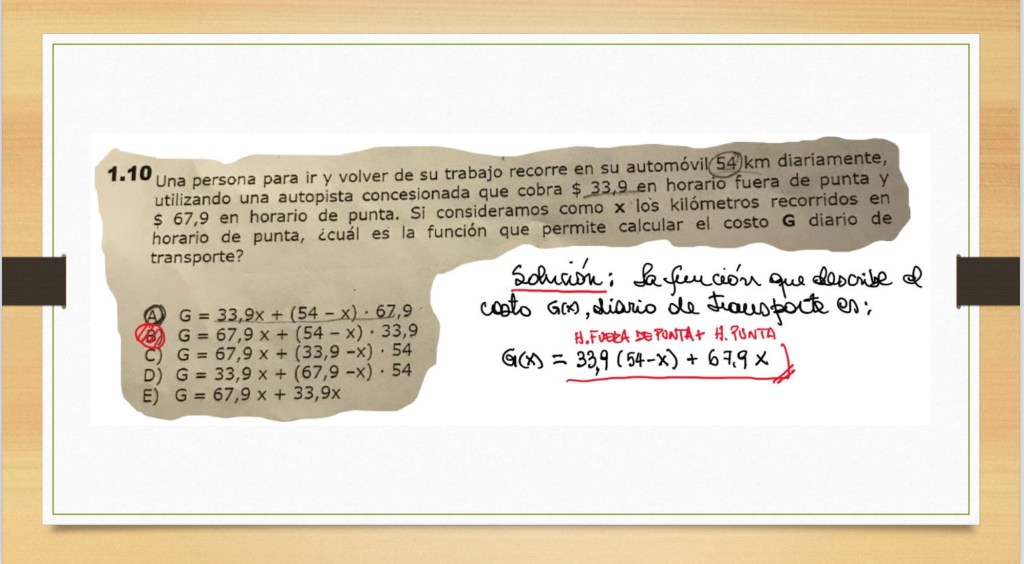 1.10 Una persona para ir y volver de su trabajo recorre en su automóvil 54 km diariamente,
utilizando una autopista concesionada que cobra $ 33,9 en horario fuera de punta y
$ 67,9 en horario de punta. Si consideramos como x los kilómetros recorridos en
horario de punta, ¿cuál es la función que permite calcular el costo G diario de
transporte?
A) G = 33,9x + (54 – x) · 67,9
B) G = 67,9 x + (54 – x) · 33,9
C) G = 67,9 x + (33,9 –x) · 54
D) G = 33,9 x + (67,9 –x) · 54
E) G = 67,9 x + 33,9x
Solución: La función que describe el
costo G(x), diario de transporte es:
H. FUERA DE PUNTA + H. PUNTA
G(x) = 33,9 (54-x) + 67,9 x